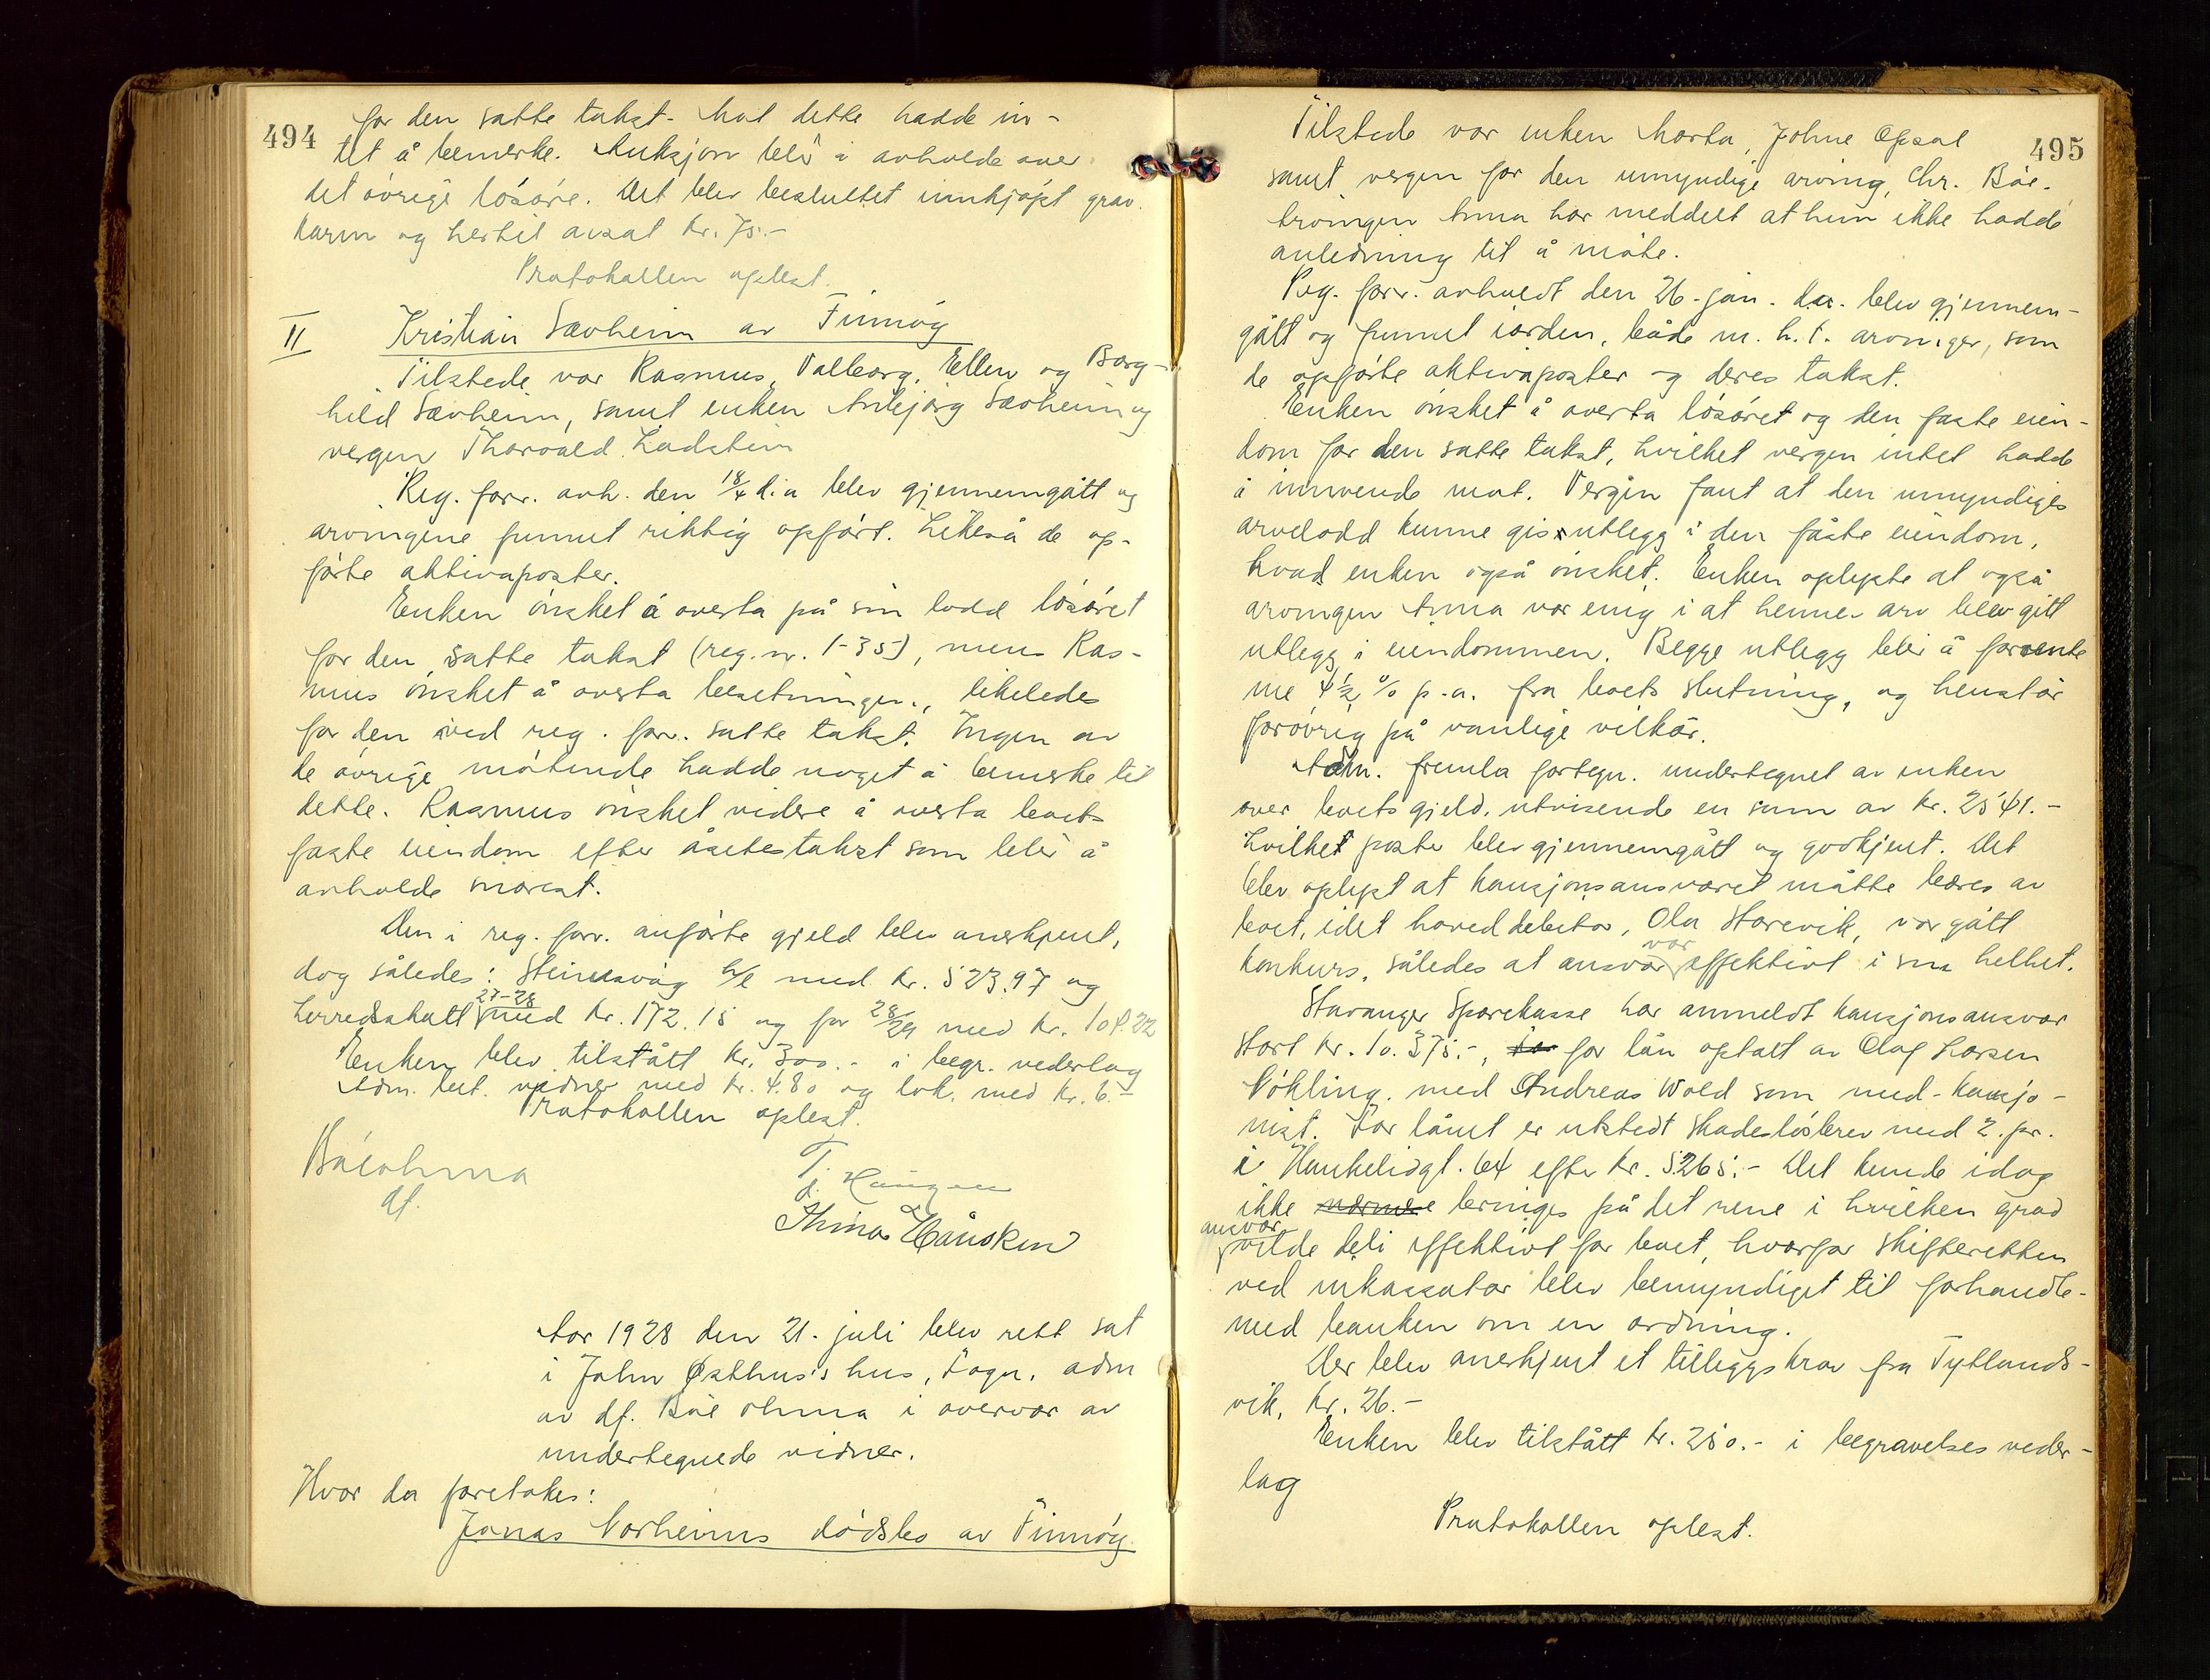 494
for den satte takst. Mot dette hadde in-
tet å bemerke. Auksjon blir å avholde over
det øvrige løsøre. Det blev besluttet innkjøpt grav-
karm og hertil avsat kr. 75.-
Protokollen oplest.
II Kristian Sævheim av Finnøy
Tilstede var Rasmus, Valborg, Ellen og Borg-
hild Sævheim, samt enken Anbjørg Sævheim og
vergen Thorvald Ladstein
Reg. forr. avh. den 18/4 d.a blev gjennemgått og
arvingene funnet riktig opført. Likeså de op-
førte aktivaposter.
Enken ønsket å overta på sin lodd løsøret
for den satte takst (reg. nr. 1-35), mens Ras-
mus ønsket å overta besetningen, likeledes
for den ved reg. forr. satte takst. Ingen av
de øvrige møtende hadde noget å bemerke til
dette. Rasmus ønsket videre å overta boets
faste eiendom efter åsetestakst som blir å
avholde snarest.
Den i reg. forr. anførte gjeld blev anerkjent,
dog således: Steinesvåg h/l med kr. 523.97 og
herredsskatt 27-28 med kr. 172.15 og for 28/29 med kr. 108.22
Enken blev tilstått kr. 300.- i begr. vederlag
Adm. bet. vidner med kr. 4.80 og lok. med kr. 6.-
Protokollen oplest.
Bøe ohma
df.
T. d. Haugen
Thina Håusken
Aar 1928 den 21. juli blev rett sat
i John Østhus's hus, Fogn, adm
av df. Bøe ohma i overvær av
undertegnede vidner.
Hvor da foretokes:
Jonas Norheims dødsbo av Finnøy
495
Tilstede var enken Marta, Johne Opsal
samt vergen for den umyndige arving, Chr. Bøe.
Arvingen Anna har meddelt at hun ikke hadde
anledning til å møte.
Reg. forr. avholdt den 26. jan. d.a. blev gjennem-
gått og funnet iorden, både m. h. t. arvinger, som
de opførte aktivaposter og deres takst.
Enken ønsket å overta løsøret og den faste eien-
dom for den satte takst, hvilket vergen intet hadde
å innvende mot. Vergen fant at den umyndiges
arvelodd kunne gis utlegg i den faste eiendom,
hvad enken også ønsket. Enken oplyste at også
arvingen Anna var enig i at hennes arv blev gitt
utlegg i eiendommen. Begge utlegg blir å forrente
me 4 1/2 % p.a. fra boets slutning, og henstår
forøvrig på vanlige vilkår.
Adm. fremla fortegn. undertegnet av enken
over boets gjeld, utvisende en sum av kr. 2541.-
hvilket poster blev gjennemgått og godkjent. Det
blev oplyst at kausjonsansvaret måtte bæres av
boet, idet hoveddebitor, Ola Storevik, var gått
konkurs, således at ansvar var effektivt i sin helhet.
Stavanger Sparekasse har anmeldt kausjonsansvar
stort kr. 10.375.-, for lån optatt av Olaf Larsen
Nøkling, med Andreas Wold som med-kausjo-
nist. For lånet er utstedt skadesløsbrev med 2. pr.
i Haukelidgt. 64 efter kr. 5265.- Det kunde idag
ikke nærmere bringes på det rene i hvilken grad
ansvar vilde bli effektivt for boet, hvorfor skifteretten
ved inkassator blev bemyndiget til forhandle-
med banken om en ordning.
Der blev anerkjent et tilleggskrav fra Tytlands-
vik, kr. 26.-
Enken blev tilstått kr. 250.- i begravelses veder-
lag
Protokollen oplest.